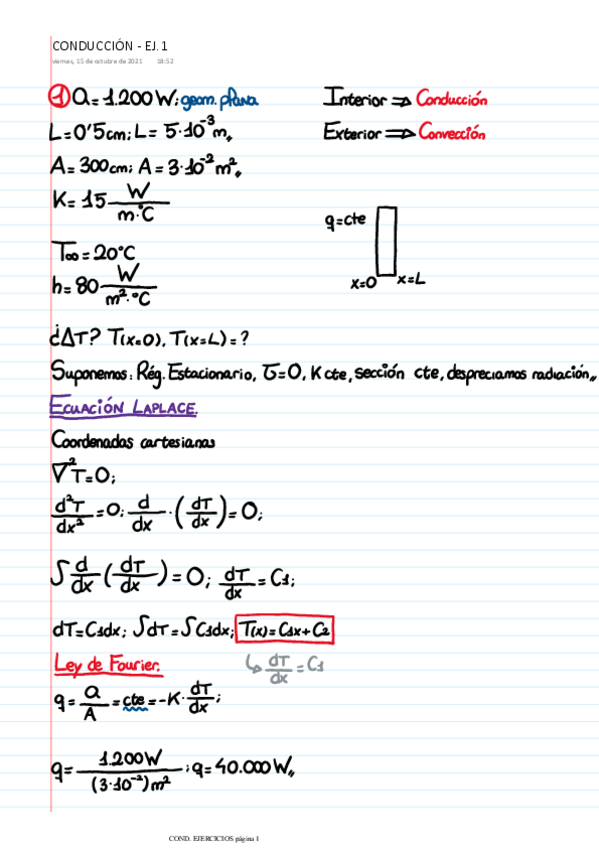 CONDUCCIÓN - EJ. 1
viernes, 15 de octubre de 2021 18:52
① Q = 1.200 W; geom. plana
Interior ⇒ Conducción
L = 0'5 cm; L = 5·10⁻³ m,,
Exterior ⇒ Convección
A = 300 cm; A = 3·10⁻² m²,,
K = 15 W/m·°C
q = cte
T∞ = 20°C
h = 80 W/m²·°C
x=0 x=L
¿ΔT? T(x=0), T(x=L) = ?
Suponemos: Rég. Estacionario, σ=0, K cte, sección cte, despreciamos radiación,,
ECUACIÓN LAPLACE.
Coordenadas cartesianas
∇²T=0;
d²T/dx² = 0; d/dx · (dT/dx) = 0;
∫ d/dx (dT/dx) = 0; dT/dx = C1;
dT = C1dx; ∫dT = ∫C1dx; T(x) = C1x + C2
Ley de Fourier.
↳ dT/dx = C1
q = Q/A = cte = -K · dT/dx;
q = 1.200 W/(3·10⁻²) m² ; q = 40.000 W,,
COND. EJERCICIOS página 1